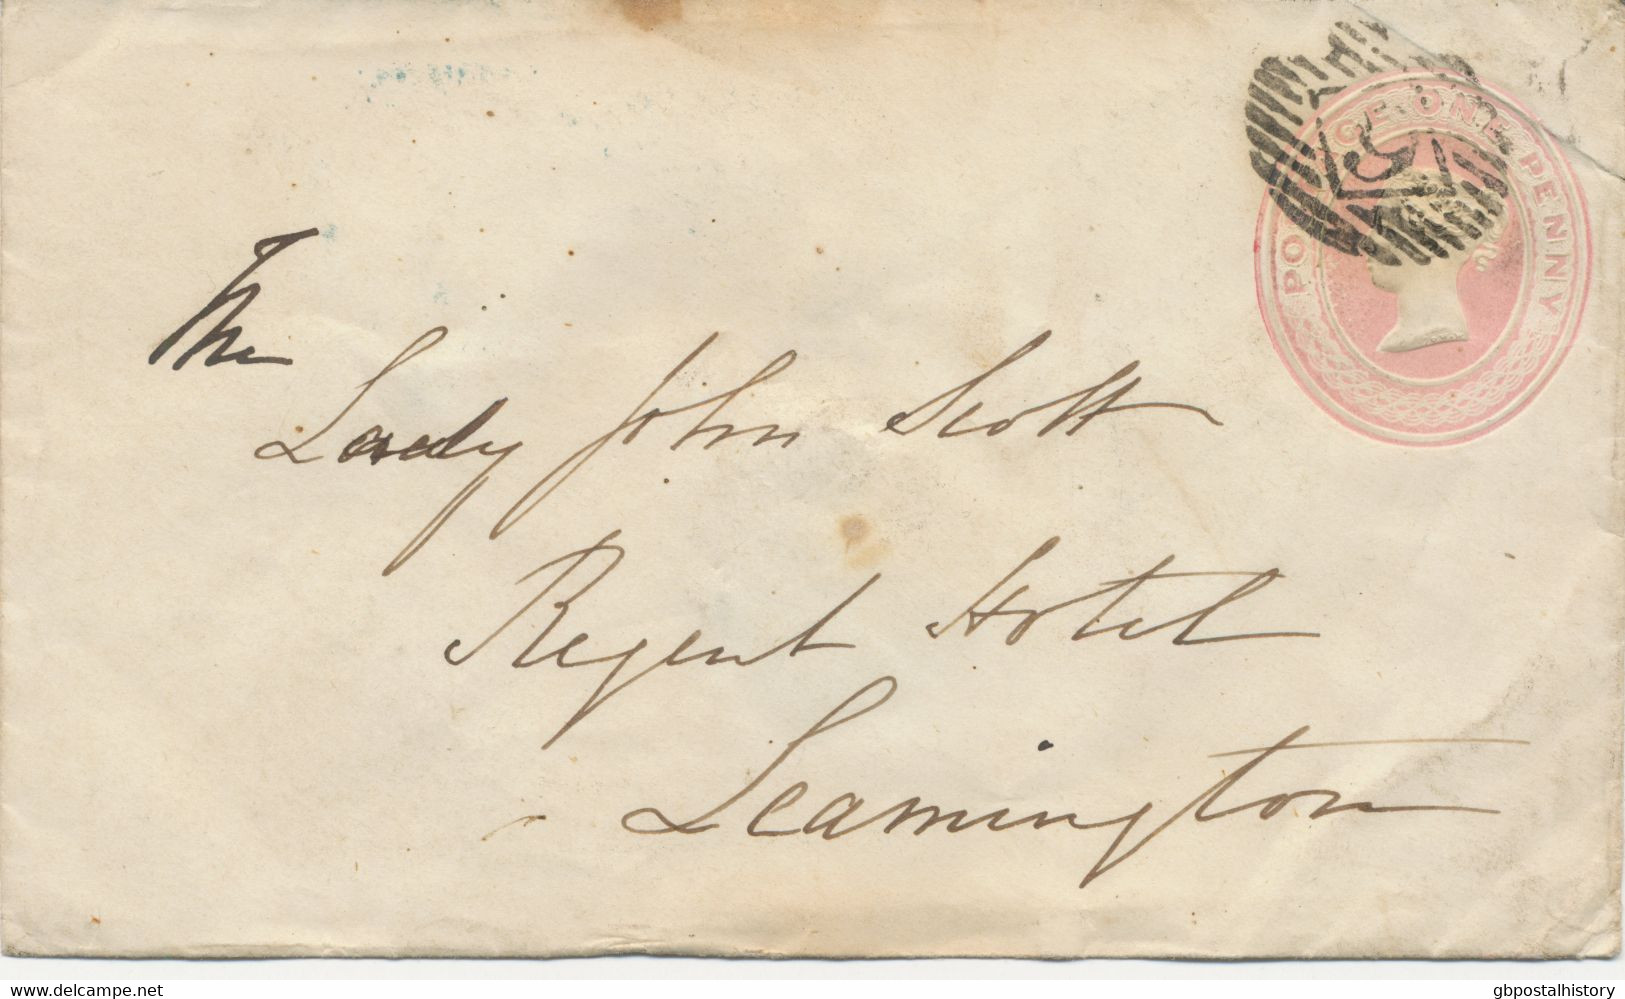 POSTAGE ONE PENNY
The
Lady John Scott
Regent Hotel
Leamington
www.delcampe.net
gbpostalhistory